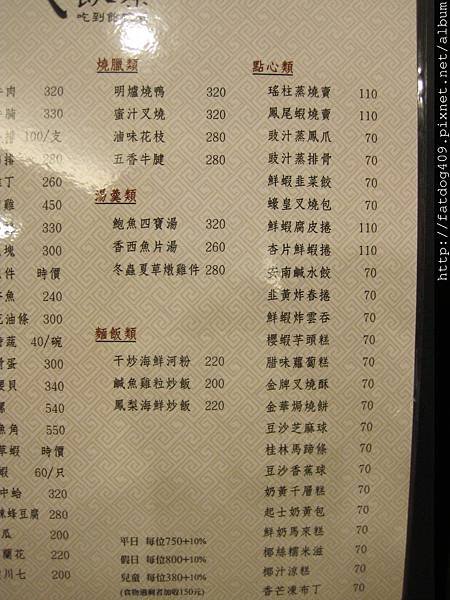 吃到飽
燒臘類
明爐燒鴨 320
蜜汁叉燒 320
滷味花枝 280
五香牛腱 280
湯羹類
鮑魚四寶湯 320
香西魚片湯 260
冬蟲夏草燉雞件 280
麵飯類
干炒海鮮河粉 220
鹹魚雞粒炒飯 200
鳳梨海鮮炒飯 220
點心類
瑤柱蒸燒賣 110
鳳尾蝦燒賣 110
豉汁蒸鳳爪 70
豉汁蒸排骨 70
鮮蝦韭菜餃 70
蠔皇叉燒包 70
鮮蝦腐皮捲 110
杏片鮮蝦捲 110
安南鹹水餃 70
韭黃炸春捲 70
鮮蝦炸雲吞 70
櫻蝦芋頭糕 70
腊味蘿蔔糕 70
金牌叉燒酥 70
金華焗燒餅 70
豆沙芝麻球 70
桂林馬蹄條 70
豆沙香蕉球 70
奶黃千層糕 70
起士奶黃包 70
鮮奶馬來糕 70
椰絲糯米滋 70
椰汁涼糕 70
香芒凍布丁 70
牛肉 320
330
100/支
280
丁 260
雞 450
330
塊 300
件 時價
魚 240
花油條 300
蔬 40/碗
蛋 300
貝 340
540
魚角 550
草蝦 時價
蝦 60/只
中蛤 320
蜂豆腐 280
瓜 200
蘭花 220
川七 200
平日 每位750+10%
假日 每位800+10%
兒童 每位380+10%
(食物過剩者加收150元)
http://fatdog409.pixnet.net/album